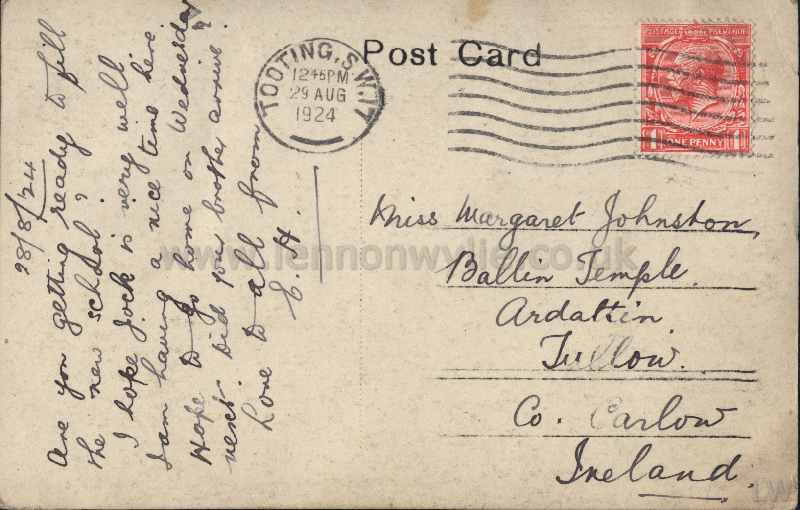 Post Card
TOOTING, S.W.17
12 45PM
29 AUG
1924
POSTAGE REVENUE
1 1
ONE PENNY
28/8/24
Are you getting ready to fill
the new school?
I hope Jock is very well
I am having a nice time here.
Hope to go home on Wednesday
next. Did your brother arrive?
Love to all from
E. H.
Miss Margaret Johnston,
Ballin Temple.
Ardattin
Tullow.
Co. Carlow
Ireland.
www.lennonwylie.co.uk
LW